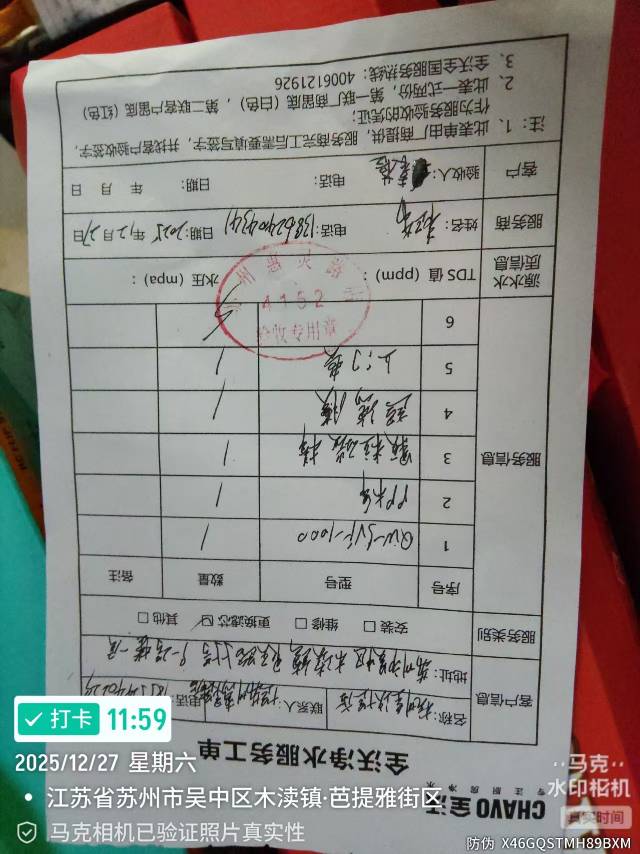 CHAVO 全沃
专注厨房净水
全沃净水服务工单
客户信息
名称：
联系人
电话：
地址：
服务类别
安装□ 维修□ 更换滤芯☑ 其他□
序号 型号 数量 备注
服务信息
1 1
2 PP棉 1
3 颗粒碳棒 1
4 超滤膜 1
5 上门费 1
6
源水水质信息
TDS 值（ppm）： 水压（mpa）：
4152
验收专用章
服务商
姓名： 电话：13862400434 日期：2025年12月27日
客户
验收人： 电话： 日期： 年 月 日
注：1、此表单由厂商提供，服务商完工后需要填写签字，并找客户验收签字，
作为服务验收的凭证；
2、此表一式两份，第一联厂商留底（白色），第二联客户留底（红色）
3、全沃全国服务热线：4006121926
打卡 11:59
2025/12/27 星期六
江苏省苏州市吴中区木渎镇·芭提雅街区
马克相机已验证照片真实性
马克
水印相机
真实时间
防伪 X46GQSTMH89BXM